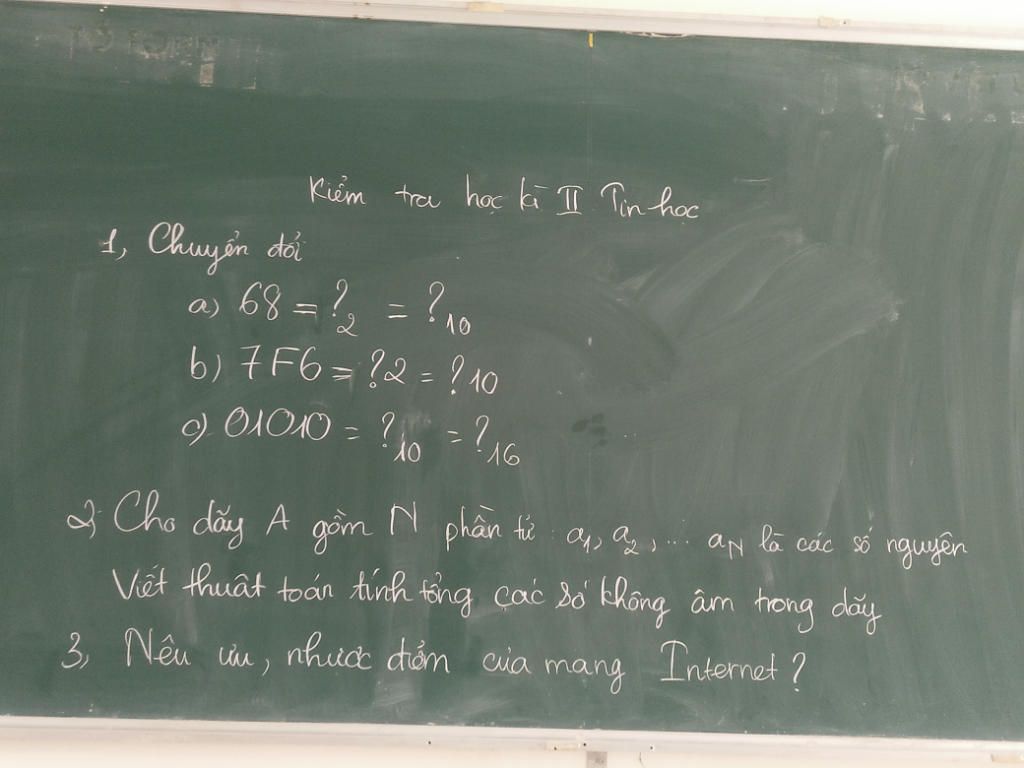 Kiểm tra học kì II Tin học
1, Chuyển đổi
a) 68 = ?₂ = ?₁₀
b) 7F6 = ?2 = ?10
c) 01010 = ?₁₀ = ?₁₆
2, Cho dãy A gồm N phần tử a₁, a₂, ... a_N là các số nguyên
Viết thuật toán tính tổng các số không âm trong dãy
3, Nêu ưu, nhược điểm của mạng Internet?